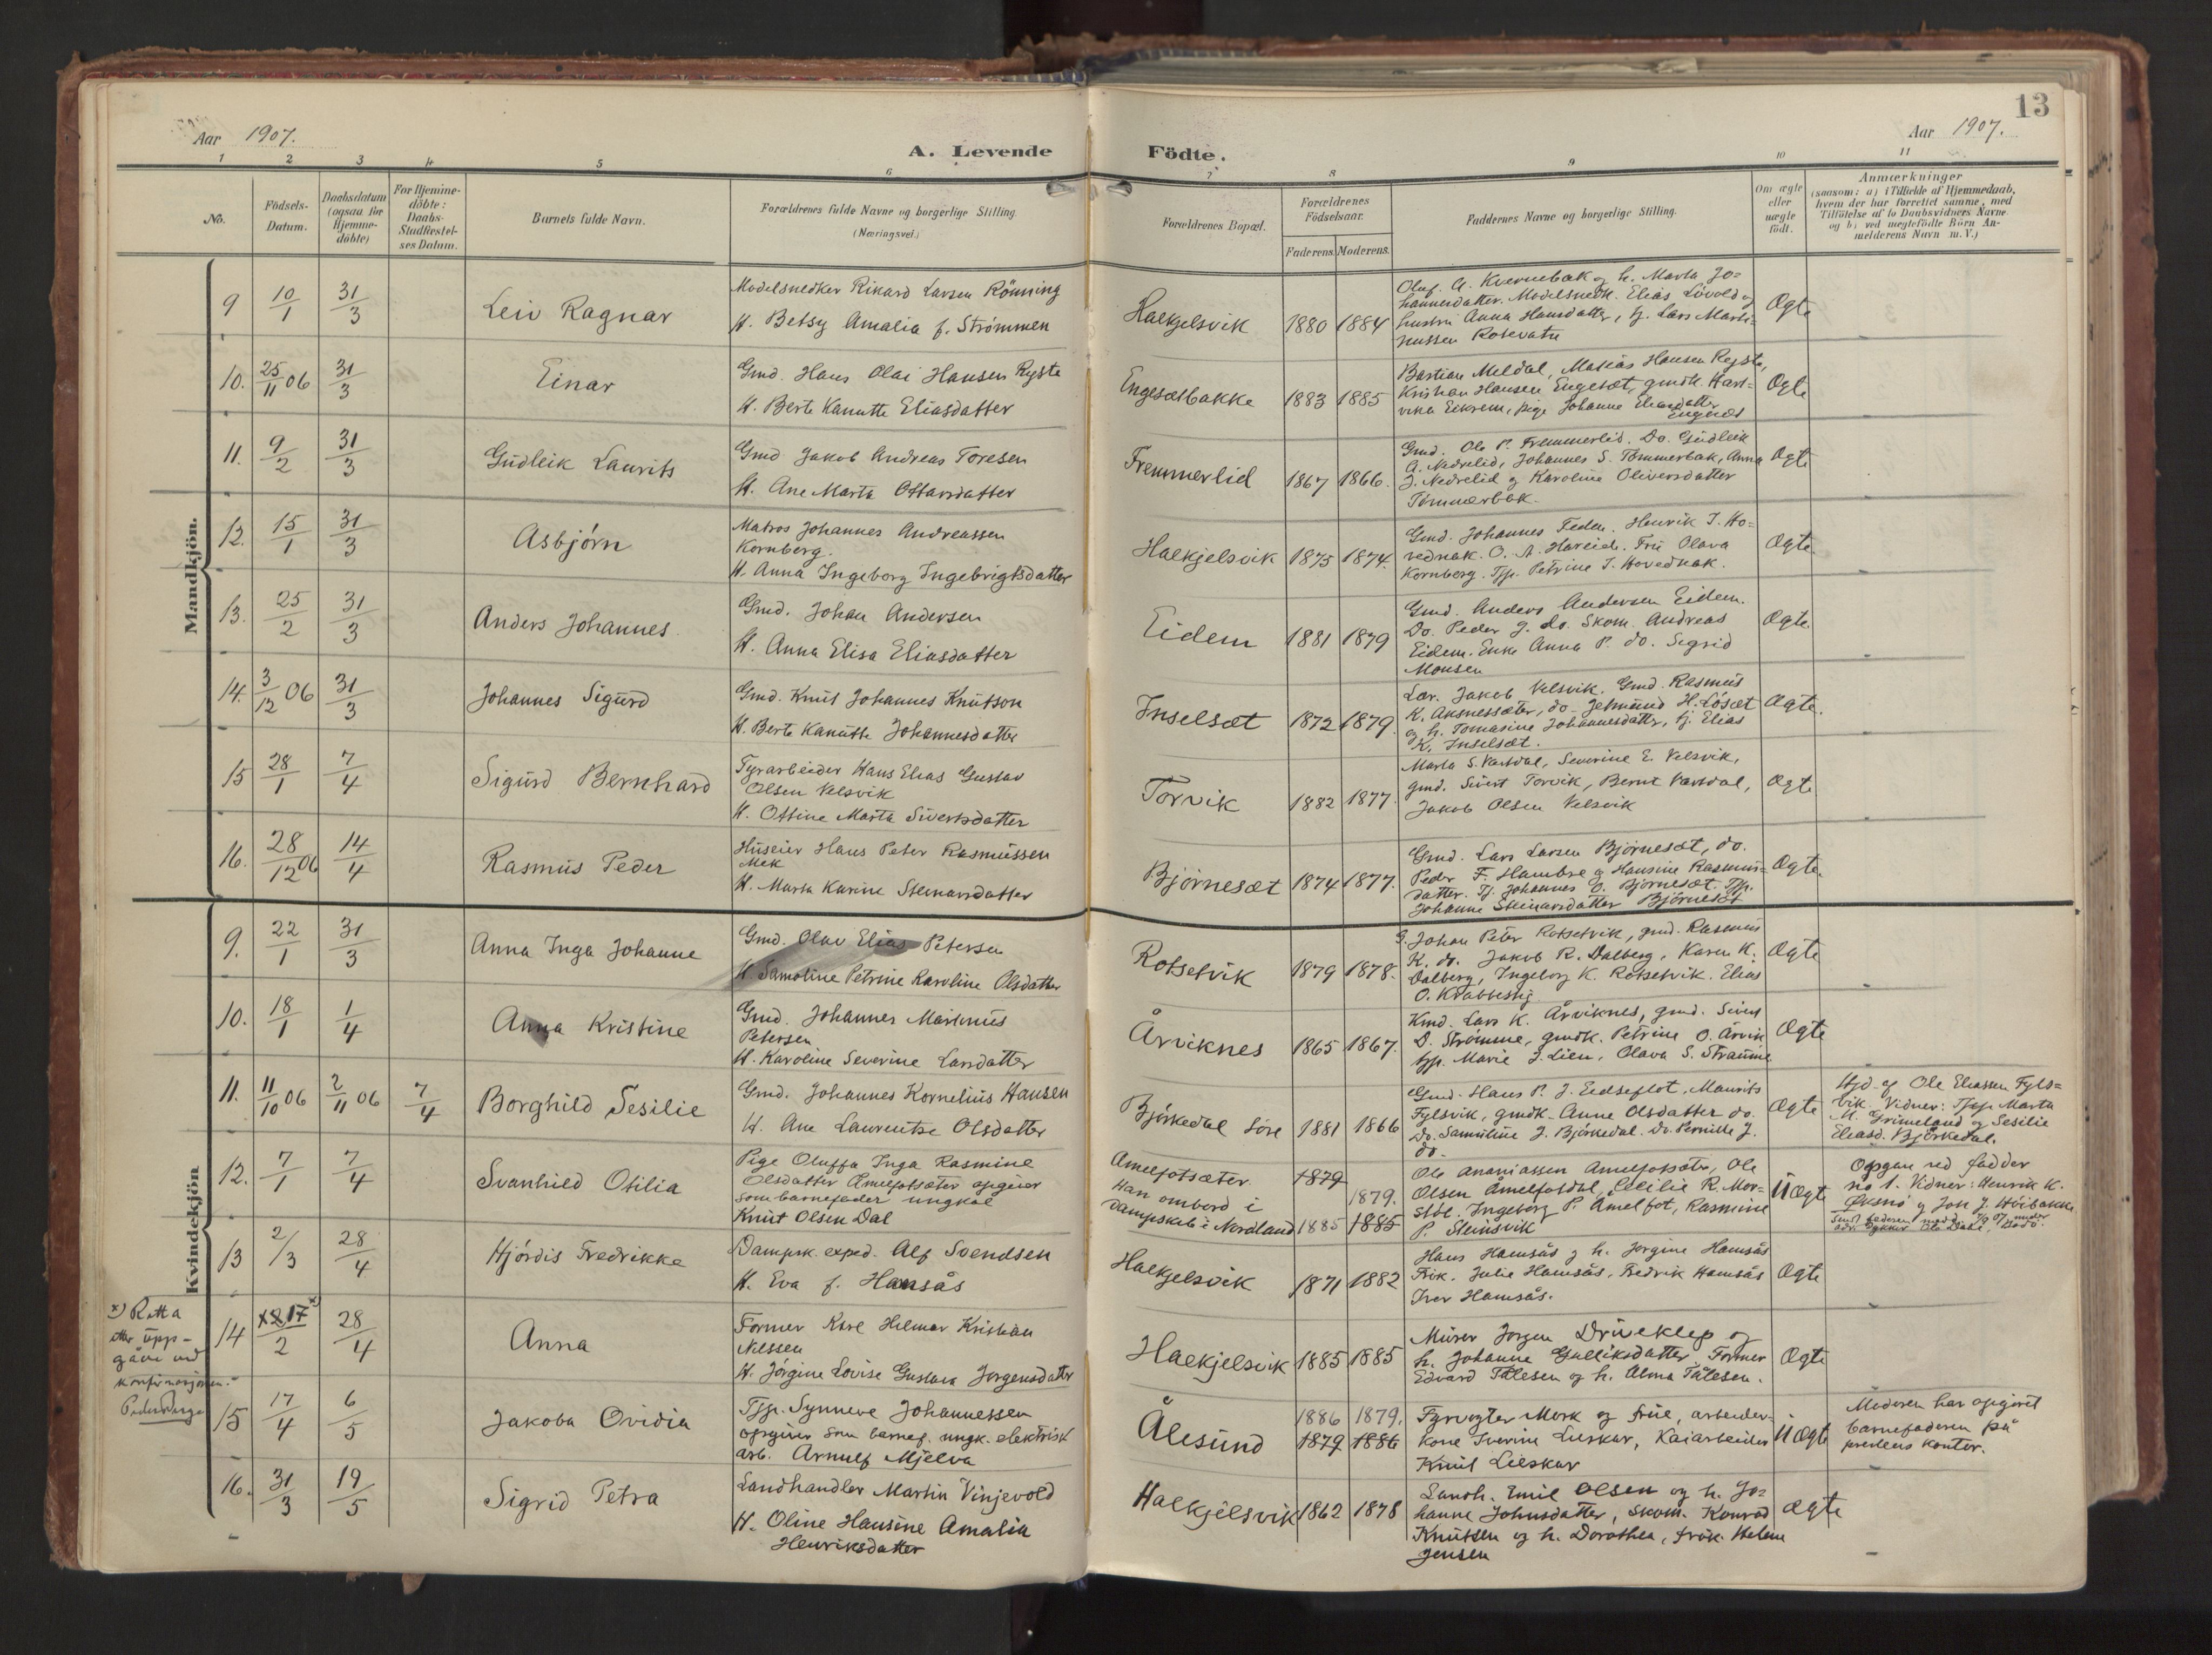 13
Aar 1907.
Aar 1907.
A. Levende
Födte.
1 2 3 4 5 6 7 8 9 10 11
No.
Födsels-
Datum.
Daabsdatum
(ogsaa for
Hjemme-
döbte)
For Hjemme-
döbte:
Daabs-
Stadfæstel-
ses Datum.
Barnets fulde Navn.
Forældrenes fulde Navne og borgerlige Stilling.
(Næringsvei.)
Forældrenes Bopæl.
Forældrenes
Födselsaar.
Faderens. Moderens.
Faddernes Navne og borgerlige Stilling.
Om ægte
eller
uægte
født.
Anmærkninger
(saasom: a) i Tilfælde af Hjemmedaab,
hvem der har forrettet samme, med
Tilføielse af to Daabsvidners Navne
og b) ved uægtefödte Börn An-
melderens Navn m. V.)
Mandkjön.
9 10/1 31/3 Leiv Ragnar
Modelsnedker Rikard Larsen Rönning
H. Betsy Amalia f. Strömmen
Halkjelsvik 1880 1884
Oluf A. Kvernebak og h. Marta Jo-
hannesdatter. Modelsnedk. Elias Lövold og
hustru Anna Hansdatter, tj. Lars Marti-
nussen Rotevatn
Ægte
10. 25/11 06 31/3 Einar
Gmd. Hans Olai Hansen Rysta
H. Berte Kanutte Eliasdatter
Engesætbakke 1883 1885
Bastian Meldal, Matias Hansen Rysta,
Kristian Hansen Engeset, gmdk. Hart-
vika Eikrem, pige Johanne Eliasdatter
Engeset
Ægte
11. 9/2 31/3 Gudleik Laurits
Gmd. Jakob Andreas Toresen
H. Ane Marta Ottarsdatter
Fremmerlid 1867 1866.
Gmd. Ole P. Fremmerlid. Do. Gudleik
A. Nedrelid, Johannes S. Tömmerbak, Anna
J. Nedrelid og Karoline Oliversdatter
Tömmerbak.
Ægte
12. 15/1 31/3 Asbjörn
Matros Johannes Andreassen
Kornberg.
H. Anna Ingeborg Ingebrigtsdatter
Halkjelsvik 1875 1874.
Gmd. Johannes Feden. Henrik J. Ho-
vednak. O. A. Hareide. Fru Olava
Kornberg. Tjp. Petrine J. Hovednak.
Ægte
13. 25/2 31/3 Anders Johannes
Gmd. Johan Andersen
H. Anna Elisa Eliasdatter
Eidem 1881 1879
Gmd. Anders Andersen Eidem.
Do. Peder J. do. Skom. Andreas
Eidem. Enke Anna P. do. Sigrid
Monsen
Ægte.
14. 3/12 06 31/3 Johannes Sigurd
Gmd. Knut Johannes Knutson
H. Berte Kanutte Johannesdatter
Inselsæt 1872 1879.
Lær. Jakob Velsvik. Gmd. Rasmus
K. Aksnessæter, do. Jetmund H. Lösæt
og h. Tomasine Johannesdatter, tj. Elias
K. Inselsæt.
Ægte.
15 28/1 7/4 Sigurd Bernhard
Fyrarbeider Hans Elias Gustav
Olsen Velsvik
H. Ottine Marta Sivertsdatter
Torvik 1882 1877.
Marta S. Vartdal, Severine E. Velsvik,
gmd. Sivert Torvik, Bernt Vartdal,
Jakob Olsen Velsvik
Ægte
16. 28/12 06 14/4 Rasmus Peder
Huseier Hans Peter Rasmussen
Mek
H. Marta Karine Steinarsdatter
Björnesæt 1874 1877.
Gmd. Lars Larsen Björnesæt, do.
Peder F. Hambre og Hansine Rasmus-
datter. Tj. Johannes O. Björnesæt. Tjp.
Johanne Steinarsdatter Björnesæt
Ægte.
Kvindekjön
9. 22/1 31/3 Anna Inga Johanne
Gmd. Olav Elias Petersen
H. Samoline Petrine Karoline Olsdatter
Rotsetvik 1879 1878.
G. Johan Peter Rotsetvik, gmd. Rasmus
K. do. Jakob R. Dalberg, Karen K.
Dalberg, Ingeborg K. Rotsetvik. Elias
O. Krabbestig
Ægte
10. 18/1 1/4 Anna Kristine
Gmd. Johannes Martinus
Petersen
H. Karoline Severine Larsdatter
Årviknes 1865 1867.
Kmd. Lars K. Årviknes, gmd. Sivert
D. Strömme, gmdk. Petrine O. Årvik
tjp. Marie J. Lien, Olava S. Straume
Ægte
11. 11/10 06 2/11 06 7/4 Borghild Sesilie
Gmd. Johannes Kornelius Hansen
H. Ane Laurentse Olsdatter
Björkedal söre 1881 1866
Gmd. Hans P. J. Eidseflot, Maurits
Fylsvik, gmdk. Anne Olsdatter do.
Do. Samuline J. Björkedal. Do. Pernille J.
do.
Ægte
Hjd. af Ole Eliassen Fyls-
vik. Vidner: Tjp. Marta
M. Grimeland og Sesilie
Eliasd. Björkedal.
12. 7/1 7/4 Svanhild Otilia
Pige Oluffa Inga Rasmine
Olsdatter Amelfotsæter opgiver
som barnefader ungkal
Knut Olsen Dal
Amelfotsæter 1879
1879.
Han ombord i
Dampskib i Nordland 1885 1885
Ole Ananiassen Amelfotsætr, Ole
Olsen Åmelfotdal, Cecilie R. Mor-
stöl. Ingeborg P. Amelfot, Rasmine
P. Steinsvik
Uægte
Opgave ved fadder
no 1. Vidner: Henrik K.
Öksnö og Jon J. Höibakke
13 2/3 28/4 Hjördis Fredrikke
Dampsk. exped. Alf Svendsen
H. Eva f. Hamsås
Halkjelsvik 1871 1882
Hans Hamsås og h. Jorgine Hamsås
Frk. Julie Hamsås. Fredrik Hamsås
Iver Hamsås.
Ægte
*) Retta
etter upp-
gåve ved
konfirmasjonen.
14 17/2 28/4 Anna
Former Karl Helmer Kristian
Nilssen
H. Jörgine Lovise Gustava Jorgensdatter
Halkjelsvik 1885 1885
Murer Jorgen Driveklep og
h. Johanne Gulliksdatter Former
Edvard Tålesen og h. Alma Tålesen.
Ægte
15 17/4 6/5 Jakoba Ovidia
Tjp. Synneve Johannessen
opgiver som barnef. ungk. elektrisk
arb. Arnulf Mjelva
Ålesund 1886 1879.
1879 1886
Fyrvogter Mork og frue, arbeider-
kone Iverine Lieskar, Kaiarbeider
Knut Lieskar
Uægte
Moderen har opgivet
barnefaderen på
prestens kontor.
16. 31/3 19/5 Sigrid Petra
Landhandler Martin Vinjevold
H. Oline Hansine Amalia
Henriksdatter
Halkjelsvik 1862 1878
Landh. Emil Olsen og h. Jo-
hanne Johnsdatter, skom. Konrad
Knutsen og h. Dorothea, frök. Helene
Jensen
ægte